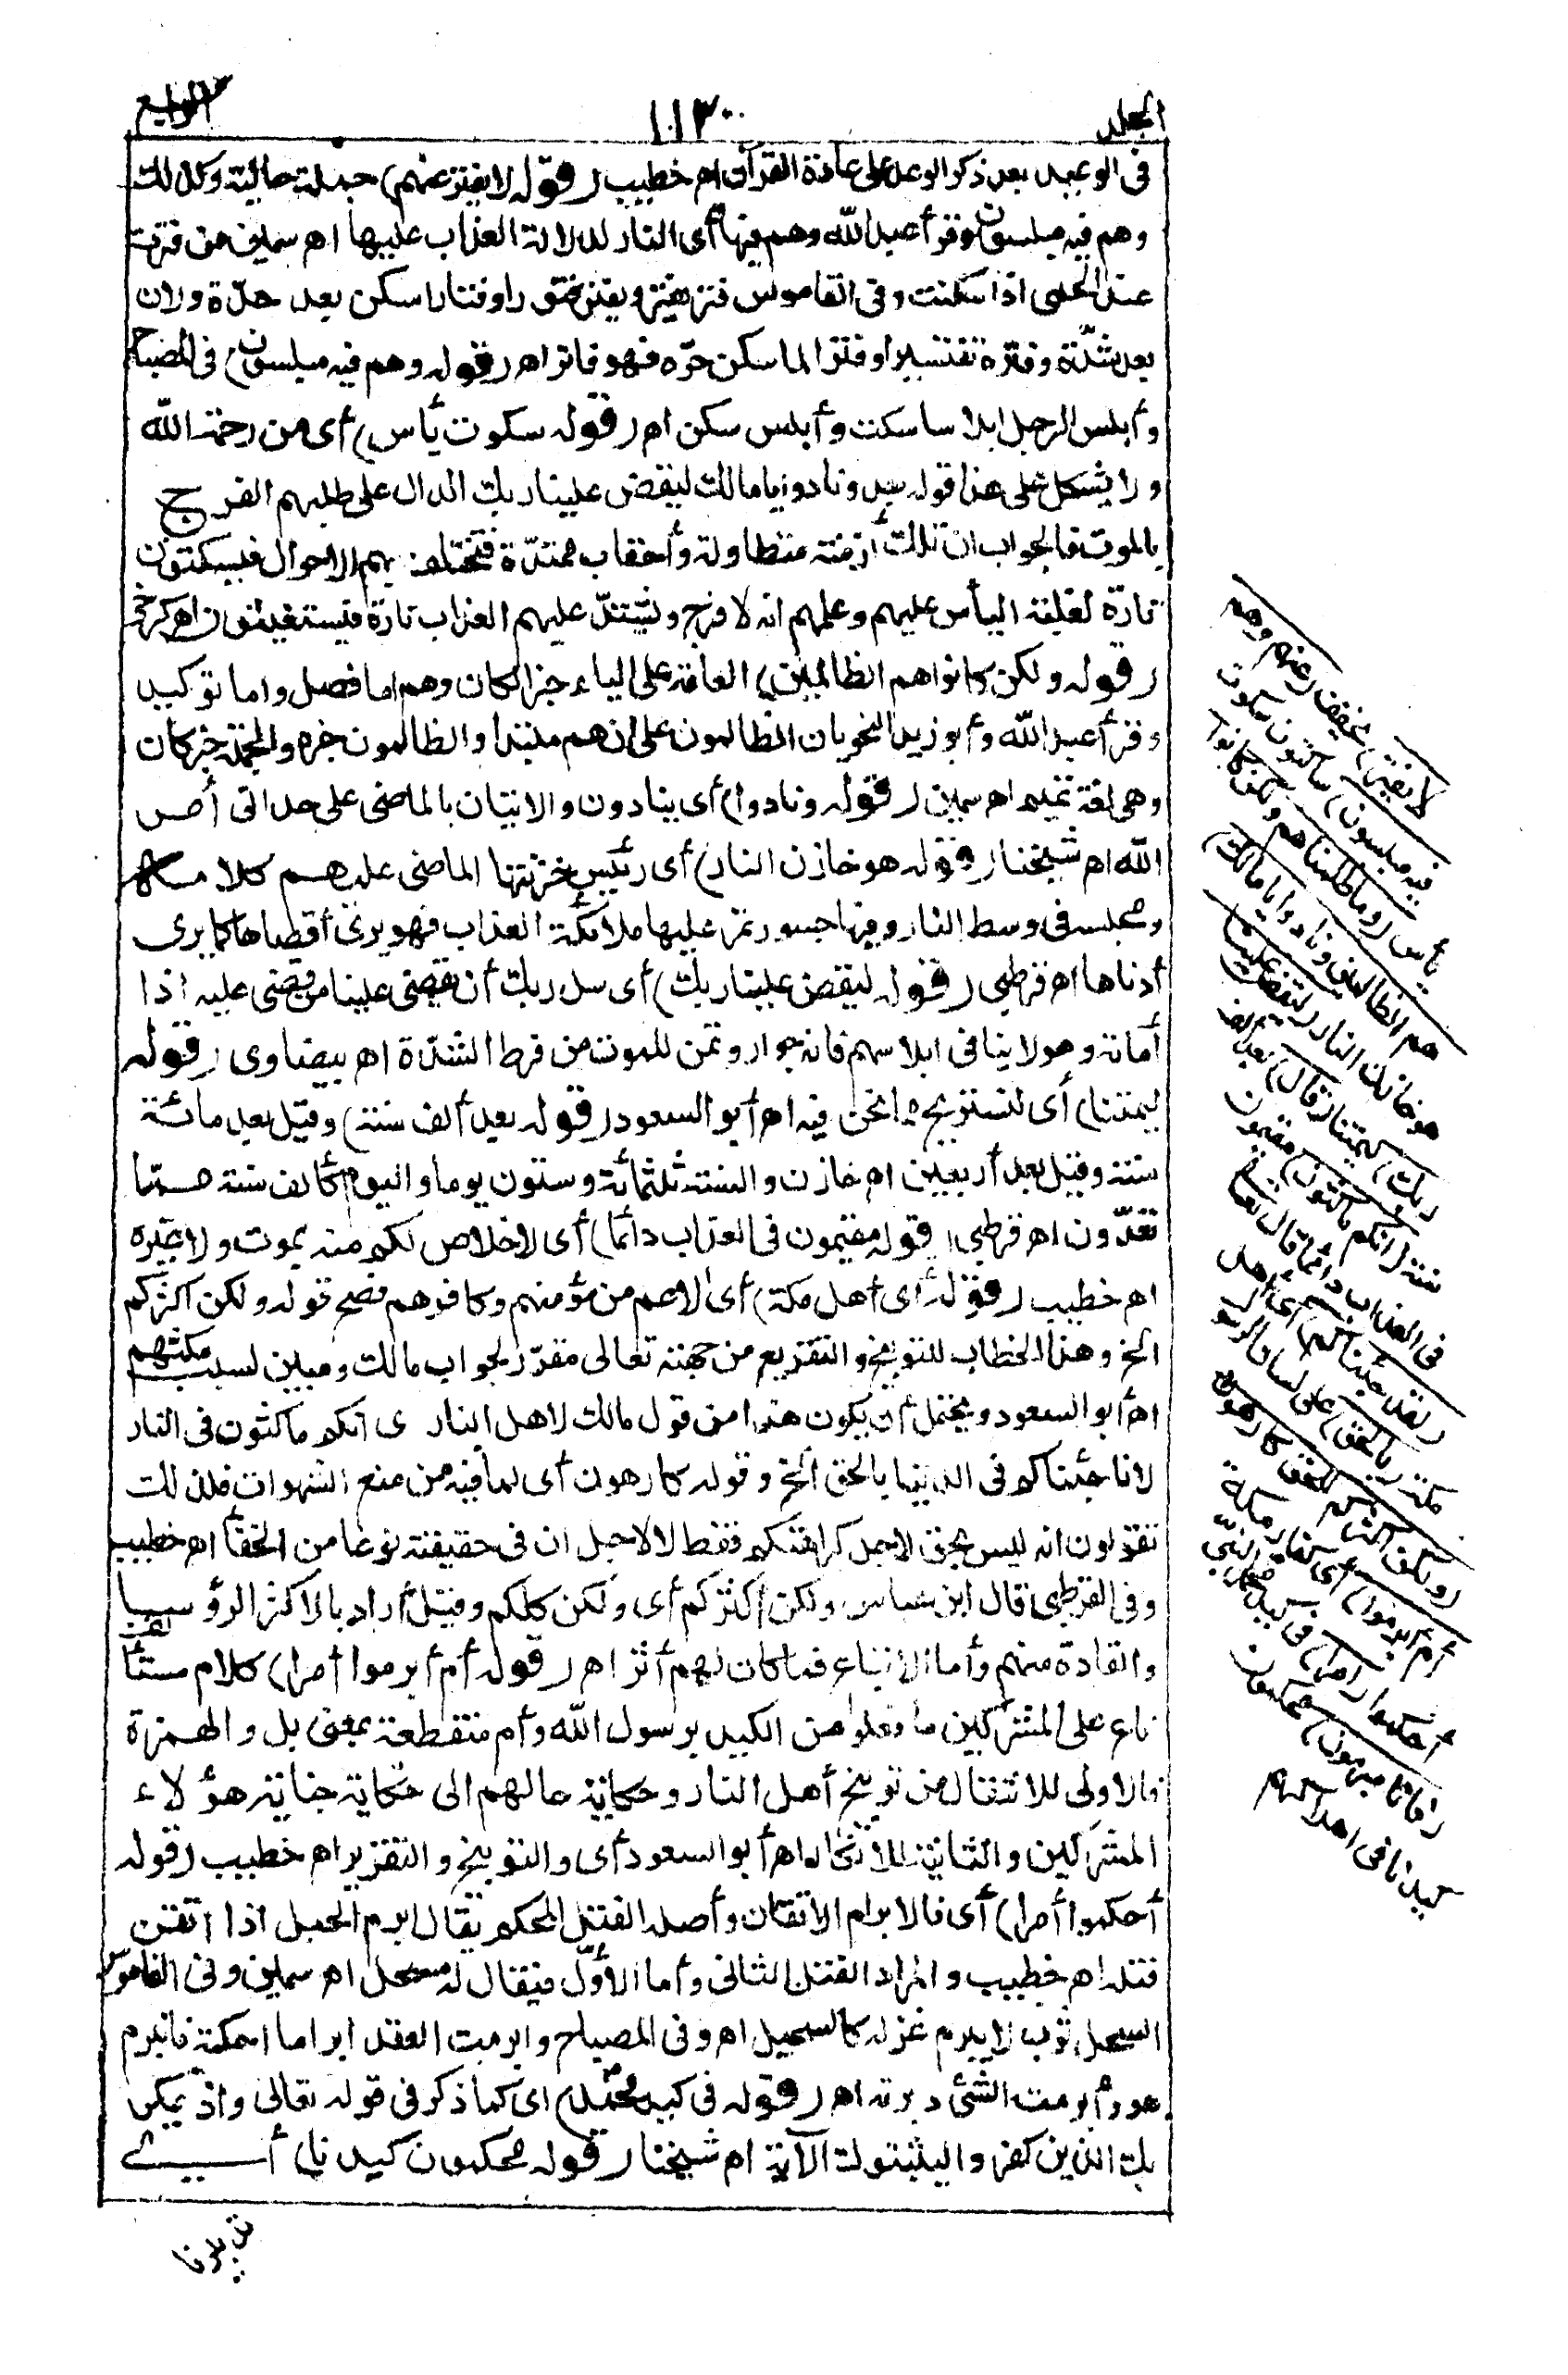 المجلد
١١٣٠
الرابع
فى الوعيد بعد ذكر الوعد على عادة القرآن اه خطيب (قوله لا يفتر عنهم) جملة حالية وكذلك
وهم فيه مبلسون وقرأ عبد الله وهم فيها أى النار لدلالة العذاب عليها اه سمين من فترت
عنه الحمى اذا سكنت وفى القاموس فتر يفتر ويفتر فتورا وفتارا سكن بعد حدّة ولان
بعد شدّة وفتره تفتيرا وفتر الماء سكن حرّه فهو فاتر اه (قوله وهم فيه مبلسون) فى المصباح
وأبلس الرجل ابلاسا سكت وأبلس سكن اه (قوله سكوت يأس) أى من رحمة الله
ولا يشكل على هذا قوله بعد ونادوا يا مالك ليقض علينا ربك الدال على طلبهم الفرج
بالموت فالجواب ان تلك أزمنة متطاولة وأحقاب ممتدّة فتختلف بهم الاحوال فيسكتون
تارة لغلبة اليأس عليهم وعلمهم انه لا فرج ويشتدّ عليهم العذاب تارة فيستغيثون اه كرخى
(قوله ولكن كانوا هم الظالمين) العامة على الياء خبرا لكان وهم اما فصل واما توكيد
وقرأ عبد الله وأبو زيد النحويان الظالمون على ان هم مبتدا والظالمون خبره والجملة خبر كان
وهى لغة تميم اه سمين (قوله ونادوا) أى ينادون والاتيان بالماضى على حد أتى أمر
الله اه شيخنا (قوله هو خازن النار) أى رئيس خزنتها الماضى عليهم كلامه
ومجلسه فى وسط النار وفيها جسور تمر عليها ملائكة العذاب فهو يرى أقصاها كما يرى
أدناها اه قرطبى (قوله ليقض علينا ربك) أى سل ربك أن يقضى علينا من قضى عليه اذا
أماته وهو لا ينافى ابلاسهم فانه جؤار وتمن للموت من فرط الشدّة اه بيضاوى (قوله
ليمتنا) أى لنستريح مما نحن فيه اه أبو السعود (قوله بعد ألف سنة) وقيل بعد مائة
سنة وقيل بعد أربعين اه خازن والسنة ثلثمائة وستون يوما واليوم كألف سنة مما
تعدّون اه قرطبى (قوله مقيمون فى العذاب دائما) أى لا خلاص لكم منه بموت ولا بغيره
اه خطيب (قوله أى أهل مكة) أى الاعم من مؤمنهم وكافرهم فصح قوله ولكن أكثركم
الخ وهذا الخطاب للتوبيخ والتقريع من جهته تعالى مقرّر لجواب مالك ومبين لسبب مكثهم
اه أبو السعود ويحتمل أن يكون هذا من قول مالك لاهل النار أى انكم ماكثون فى النار
لانا جئناكم فى الدنيا بالحق الخ وقوله كارهون أى لما فيه من منع الشهوات فلذلك
تقولون انه ليس بحق لاجل كراهتكم فقط لا لاجل ان فى حقيقته نوعا من الخفأ اه خطيب
وفى القرطبى قال ابن عباس ولكن أكثركم أى ولكن كلكم وقيل أراد بالاكثر الرؤسا
والقادة منهم وأما الاتباع فما كان لهم أثر اه (قوله أم أبرموا أمرا) كلام مستأنف
ناع على المشركين ما فعلوا من الكيد برسول الله وأم منقطعة بمعنى بل والهمزة
فالاولى للانتقال من توبيخ أهل النار وحكاية حالهم الى حكاية جناية هؤلاء
المشركين والثانية للانكار اه أبو السعود أى والتوبيخ والتقرير اه خطيب (قوله
أحكموا أمرا) أى فالابرام الاتقان وأصله الفتل المحكم يقال ابرم الحبل اذا اتقن
فتله اه خطيب والمراد الفتل الثانى وأما الأوّل فيقال له سحل اه سمين وفى القاموس
السحل ثوب لا يبرم غزله كالسحيل اه وفى المصباح وابرمت العقد ابراما احكمته فانبرم
هو وأبرمت الشئ دبرته اه (قوله فى كيد محمد) أى كما ذكر فى قوله تعالى واذ يمكر
بك الذين كفروا ليثبتوك الآية اه شيخنا (قوله محكمون كيدنا) أى
لا يفتر) يخفف (عنهم وهم
فيه مبلسون) ساكتون سكوت
يأس (وما ظلمناهم ولكن كانوا
هم الظالمين ونادوا يا مالك)
هو خازن النار (ليقض علينا
ربك) ليمتنا (قال) بعد ألف
سنة (انكم ماكثون) مقيمون
فى العذاب دائما قال تعالى
(لقد جئناكم) أى أهل
مكة (بالحق) على لسان الرسول
(ولكن أكثركم للحق كارهون
أم أبرموا) أى كفار مكة
أحكموا (أمرا) فى كيد محمد النبى
(فانا مبرمون) محكمون
كيدنا فى اهلاكهم